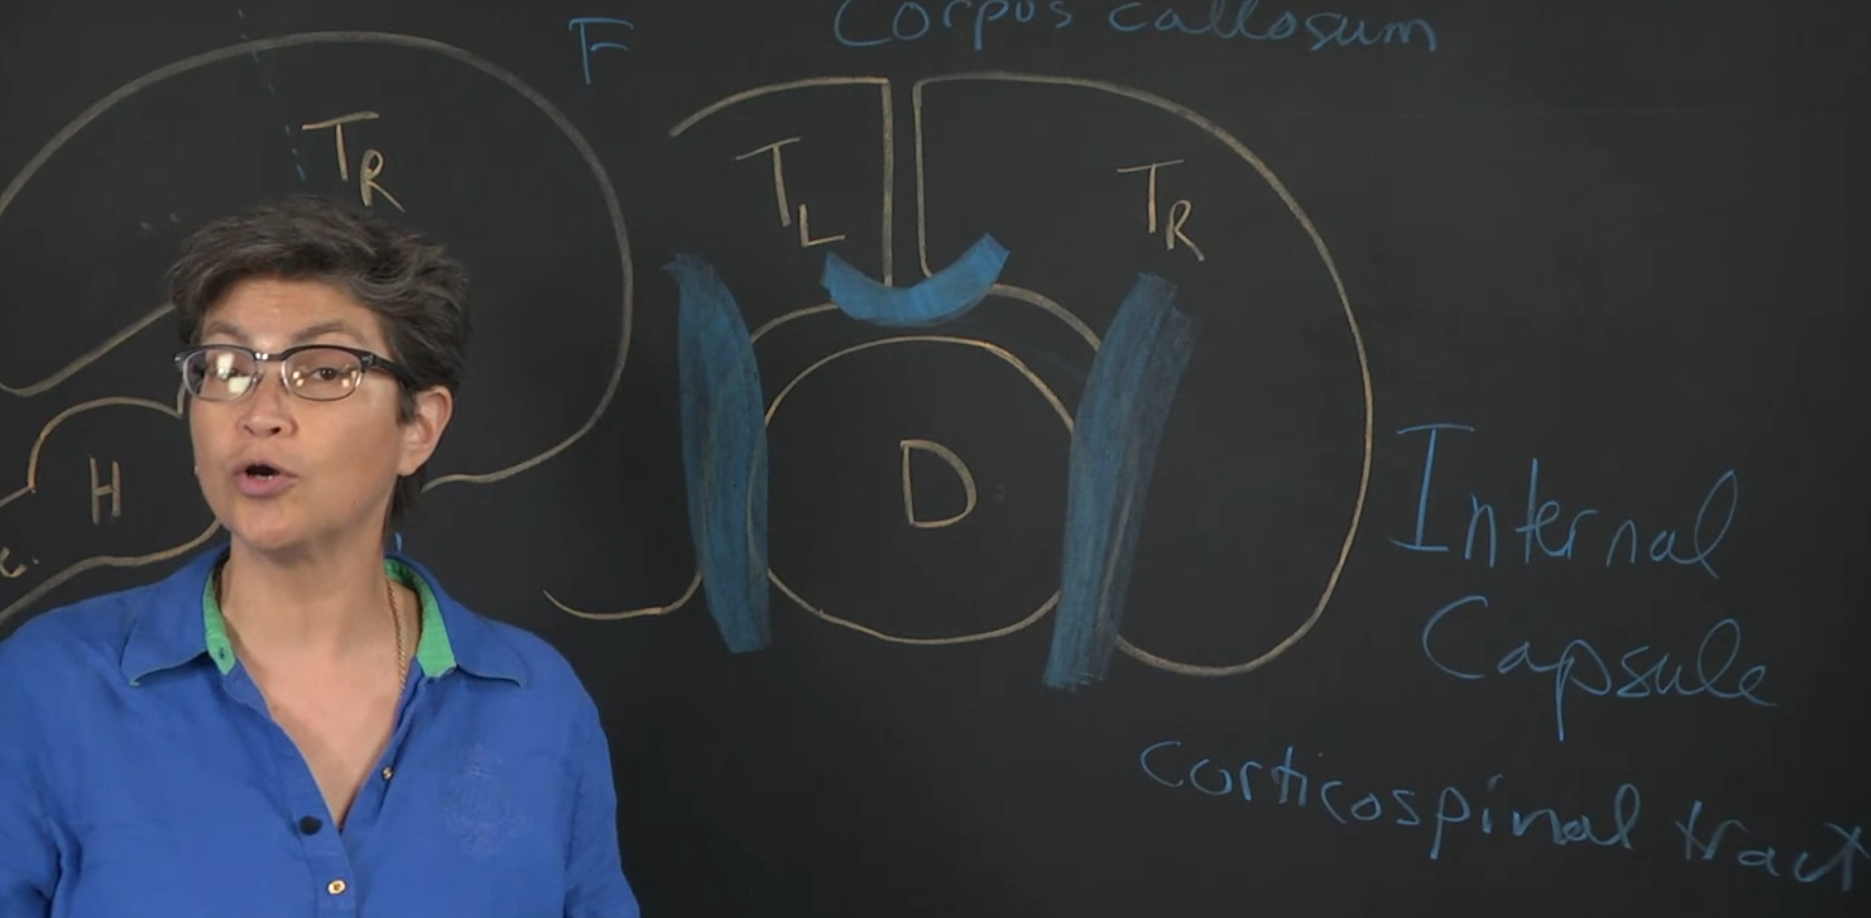 F
Corpus callosum
TR
TL
TR
H
c.
D
Internal
Capsule
corticospinal tract